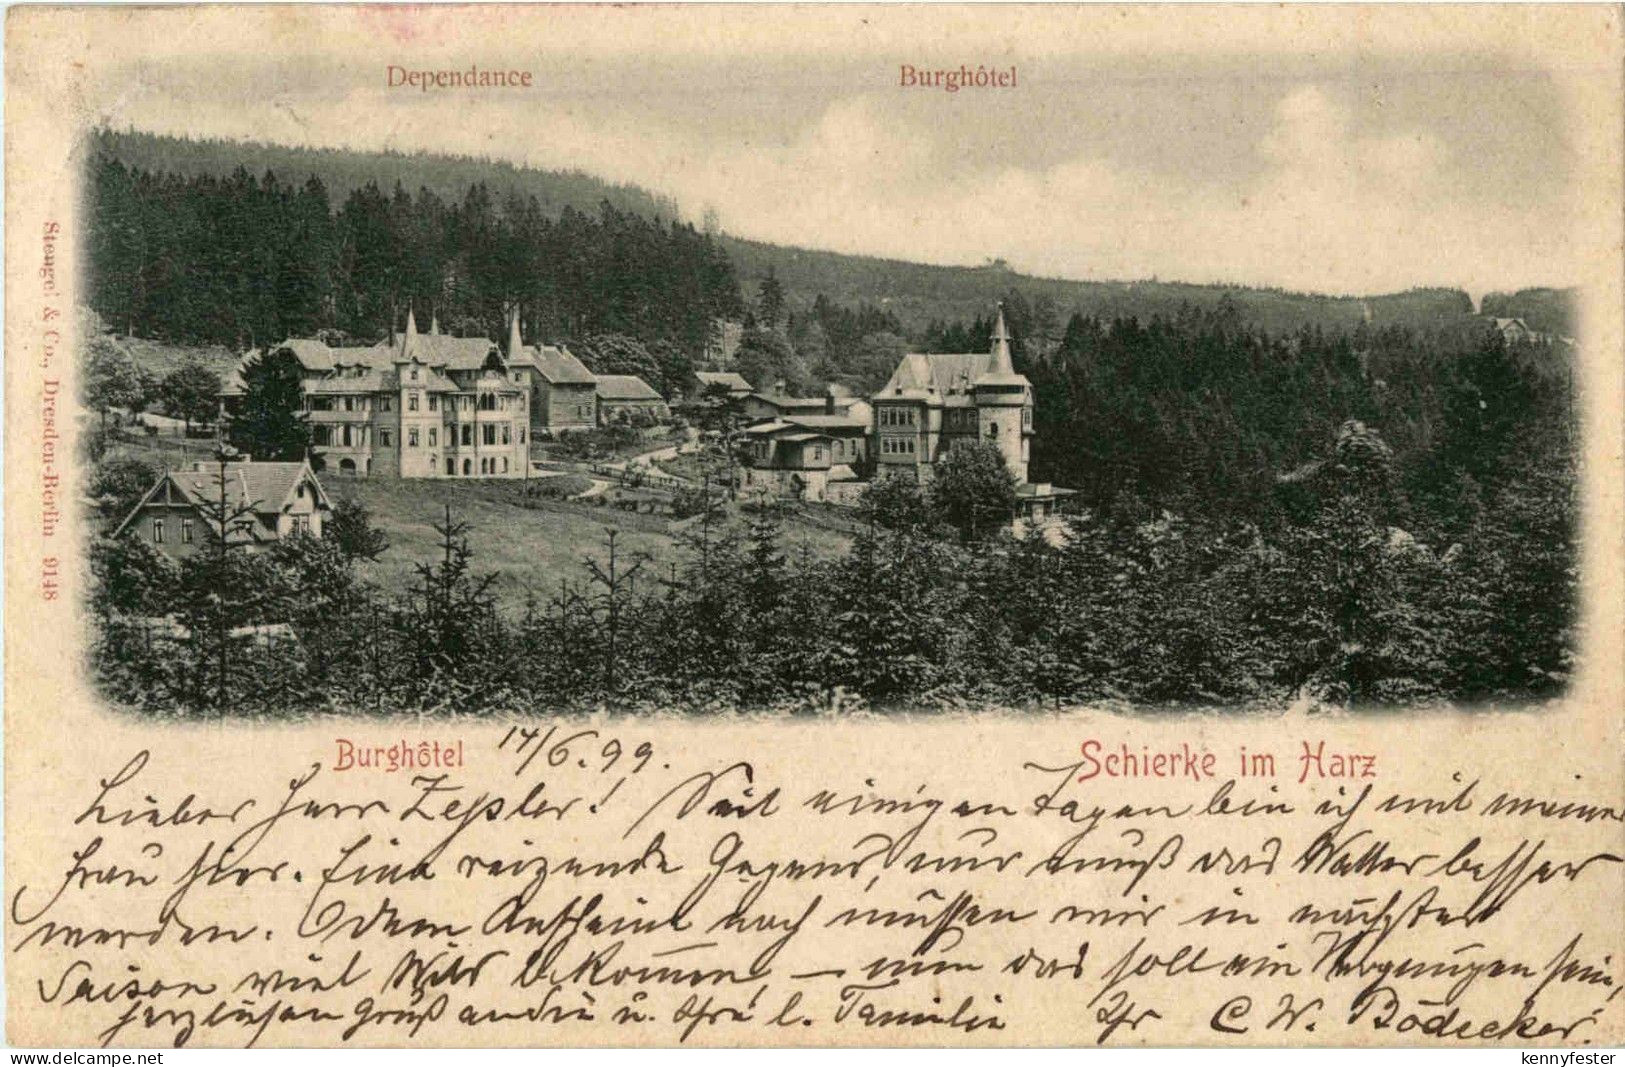 Dependance
Burghôtel
Stengel & Co., Dresden-Berlin 9148
Burghôtel
14/6.99.
Schierke im Harz
Lieber Herr Zeßler! Seit einigen Tagen bin ich mit meiner
Frau hier. Eine reizende Gegend, nur muß das Wetter besser
werden. Dem Anschein nach müssen wir in nächster
Saison viel Wild bekommen, – nun das soll ein Vergnügen sein,
herzlichen Gruß an Sie u. Ihre l. Familie Ihr C. W. Bödecker.
delcampe.net
kennyfester